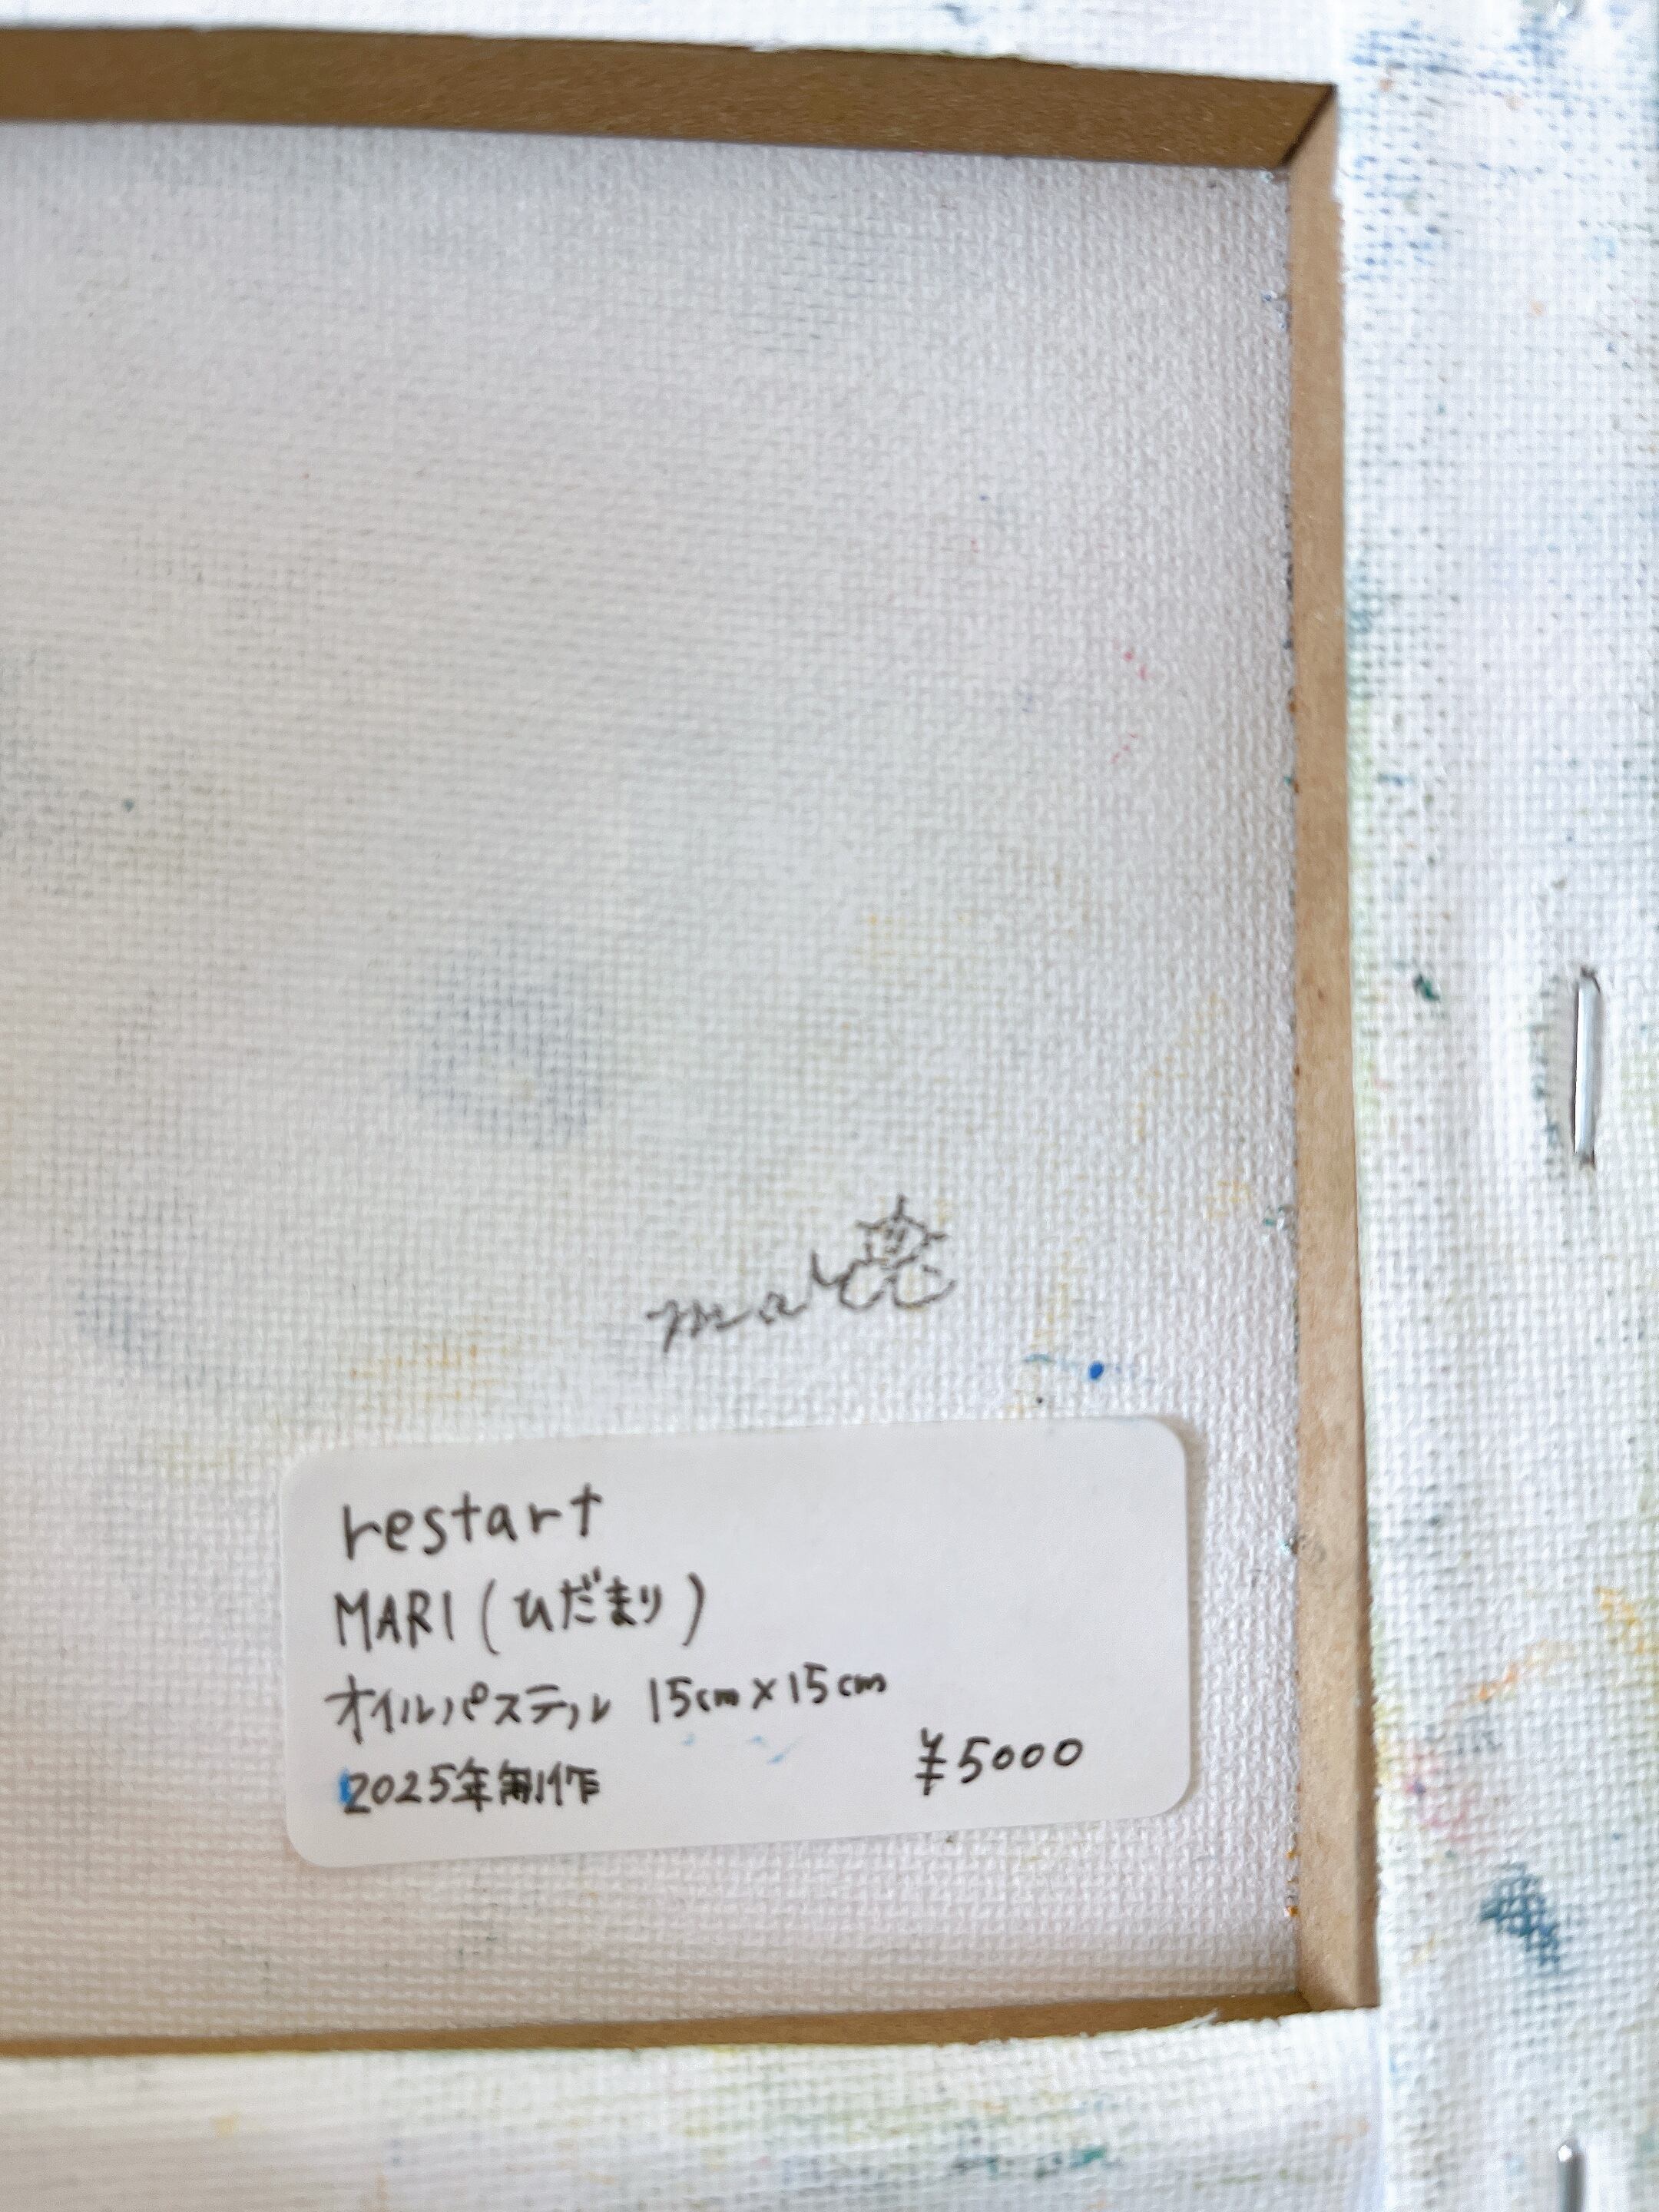 restart
MARI (ひだまり)
オイルパステル 15cm×15cm
2025年制作
¥5000